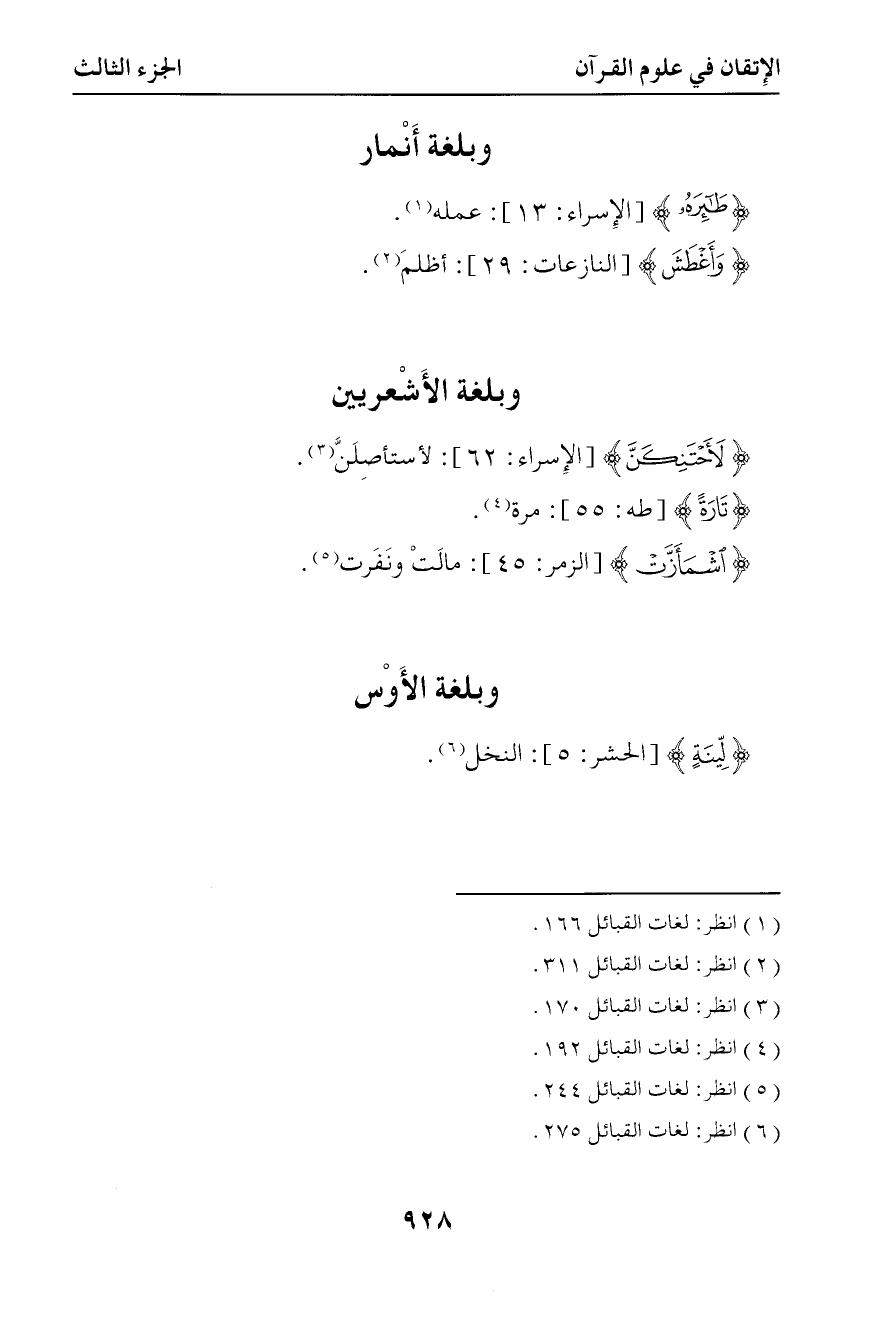 الإتقان في علوم القرآن الجزء الثالث
وبلغة أَنْمار
﴿طَٰٓئِرَهُۥ﴾ [الإسراء: ١٣]: عمله(١).
﴿وَأَغْطَشَ﴾ [النازعات: ٢٩]: أظلمَ(٢).
وبلغة الأَشْعريين
﴿لَأَحْتَنِكَنَّ﴾ [الإسراء: ٦٢]: لأستأصِلَنَّ(٣).
﴿تَارَةً﴾ [طه: ٥٥]: مرة(٤).
﴿ٱشْمَأَزَّتْ﴾ [الزمر: ٤٥]: مالَتْ ونَفَرت(٥).
وبلغة الأَوْس
﴿لِّينَةٍ﴾ [الحشر: ٥]: النخل(٦).
(١) انظر: لغات القبائل ١٦٦.
(٢) انظر: لغات القبائل ٣١١.
(٣) انظر: لغات القبائل ١٧٠.
(٤) انظر: لغات القبائل ١٩٢.
(٥) انظر: لغات القبائل ٢٤٤.
(٦) انظر: لغات القبائل ٢٧٥.
٩٢٨